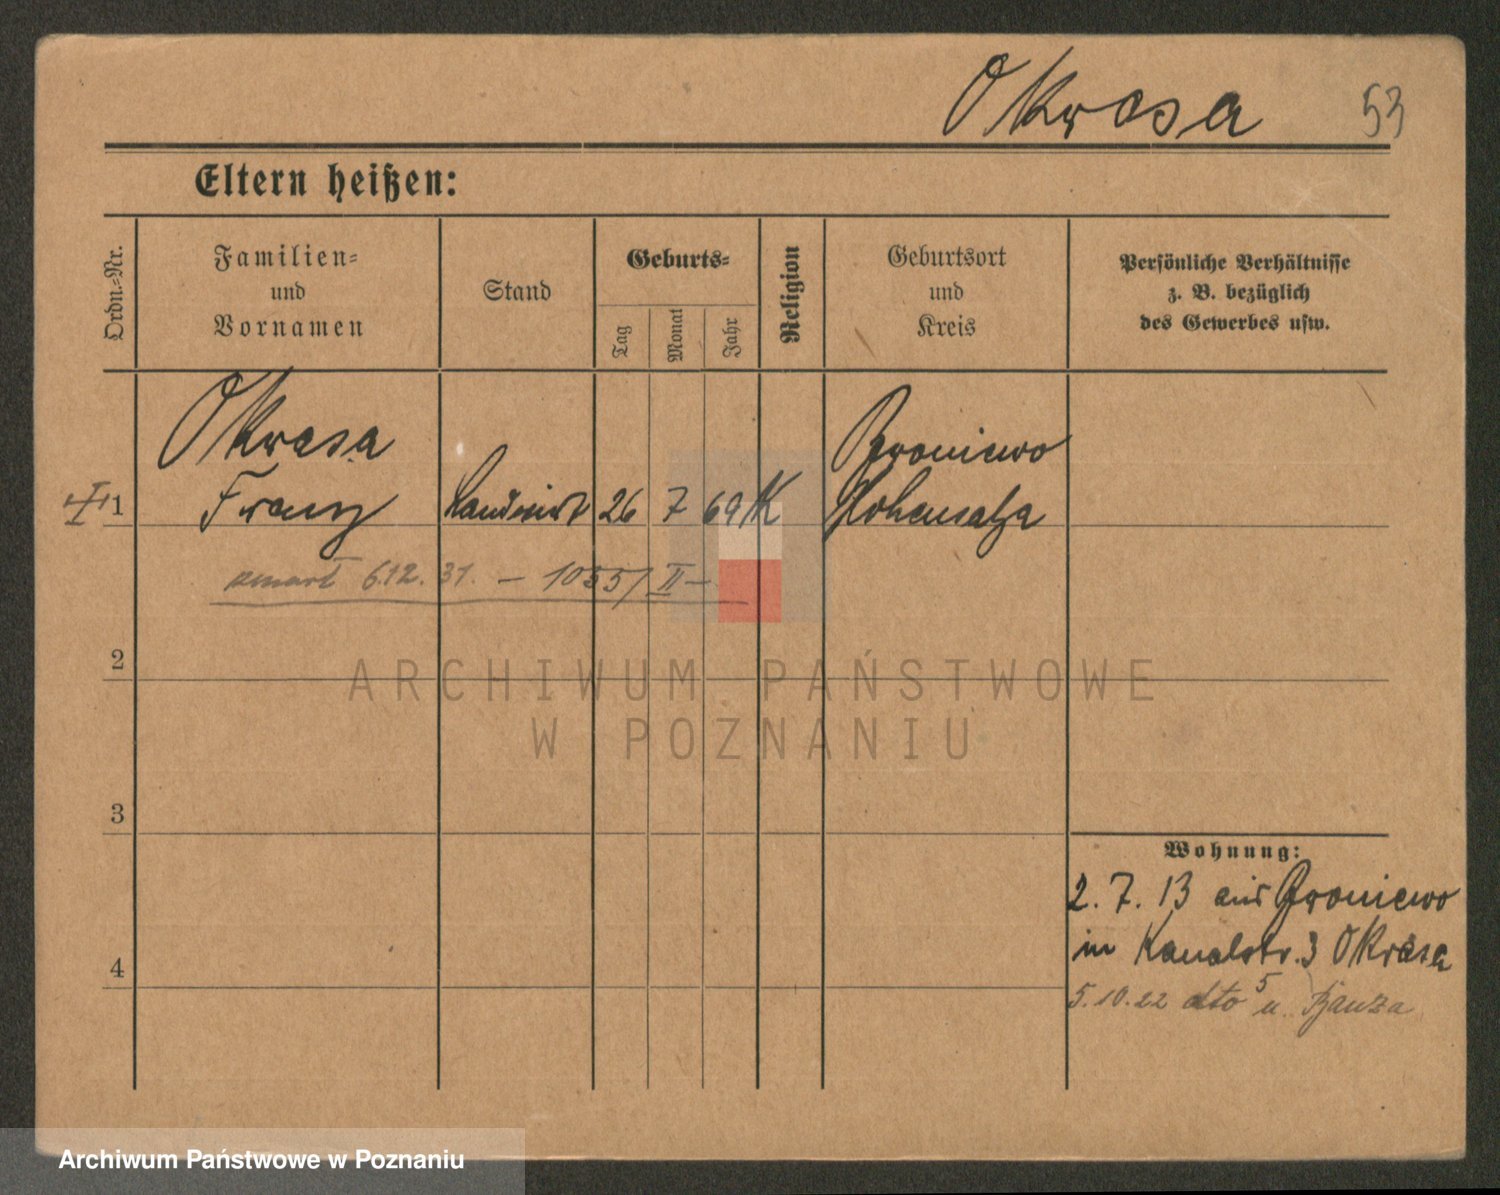 Okrasa 53
Eltern heißen:
Ordn.-Nr.
Familien-
und
Vornamen
Stand
Geburts-
Tag
Monat
Jahr
Religion
Geburtsort
und
Kreis
Persönliche Verhältnisse
z. B. bezüglich
des Gewerbes usw.
Okrasa Broniewo
1 Franz Landwirt 26 7 69 K Hohensalza
zmarł 6.12.31. — 1055/II —
2
ARCHIWUM PAŃSTWOWE
W POZNANIU
3
Wohnung:
2. 7. 13 aus Broniewo
in Kanalstr. 3 Okrasa
4
5.10.22 dto 5 u.
Archiwum Państwowe w Poznaniu